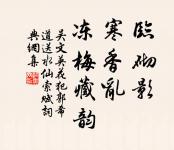 臨砌影
寒香亂
凍梅藏韻
吳文英花犯郭希
道送水仙索賦詞
典網集